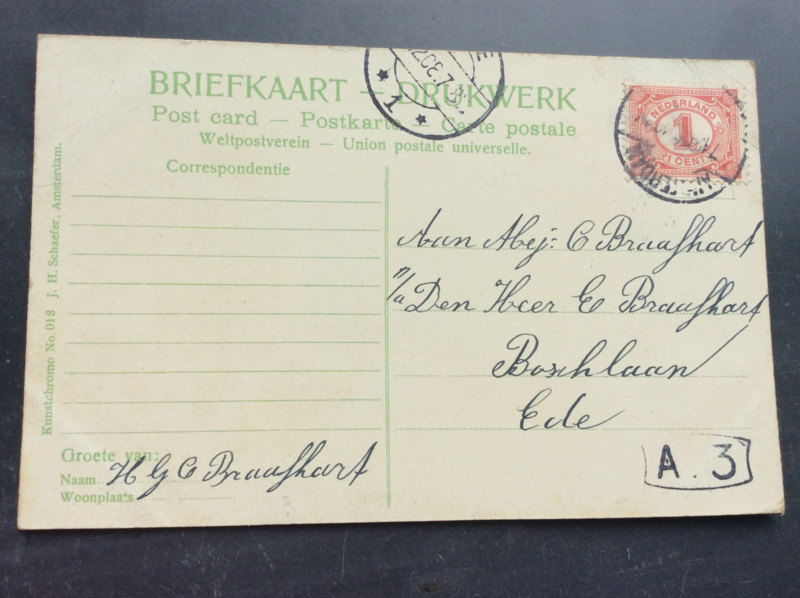 BRIEFKAART — DRUKWERK
Post card — Postkarte — Carte postale
Weltpostverein — Union postale universelle.
Correspondentie
NEDERLAND
1
1 CENT
1
Aan Mej: C Braafhart
p/a Den Heer E Braafhart
Boschlaan
Ede
A.3
Groete van:
Naam H G C Braafhart
Woonplaats
Kunstchromo No. 018 J. H. Schaefer, Amsterdam.